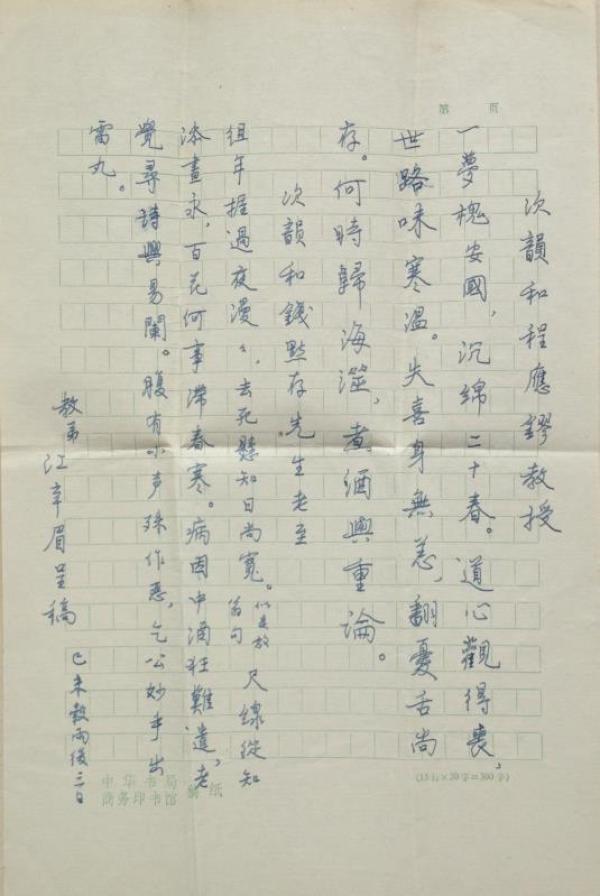 第 页
次韻和程應鏐教授
一夢槐安國,沉綿二十春。道心觀得喪,
世路味寒溫。失喜身無恙,翻憂舌尚
存。何時歸海澨,煮酒與重論。
次韻和錢默存先生老至
徂年過夜漫〻,去死懸知日尚寬。似是放翁句 尺線從知
添晝永,百花何事滯春寒。病因中酒狂難遣,老
覺尋詩興易闌。腹有小声殊作惡,乞公妙手出
雷丸。
教弟江辛眉呈稿 己未穀雨後三日
中华书局
商务印书馆 稿纸
(15行×20字=300字)